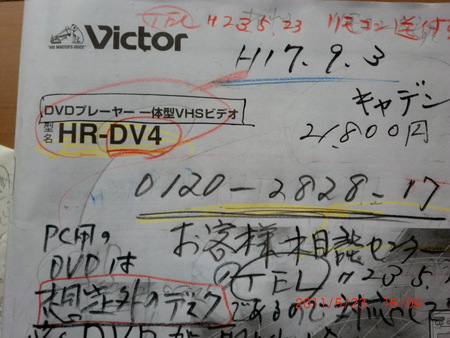 TEL H23.5.23 リモコン送付
"HIS MASTER'S VOICE"
Victor
H17.9.3
DVDプレーヤー 一体型VHSビデオ
型名 HR-DV4
キャデン
21,800円
0120-2828-17
お客様相談センター
PC用の
DVDは
(TEL) H23.5.
想定外のディスク
であるので 対応して
DVD